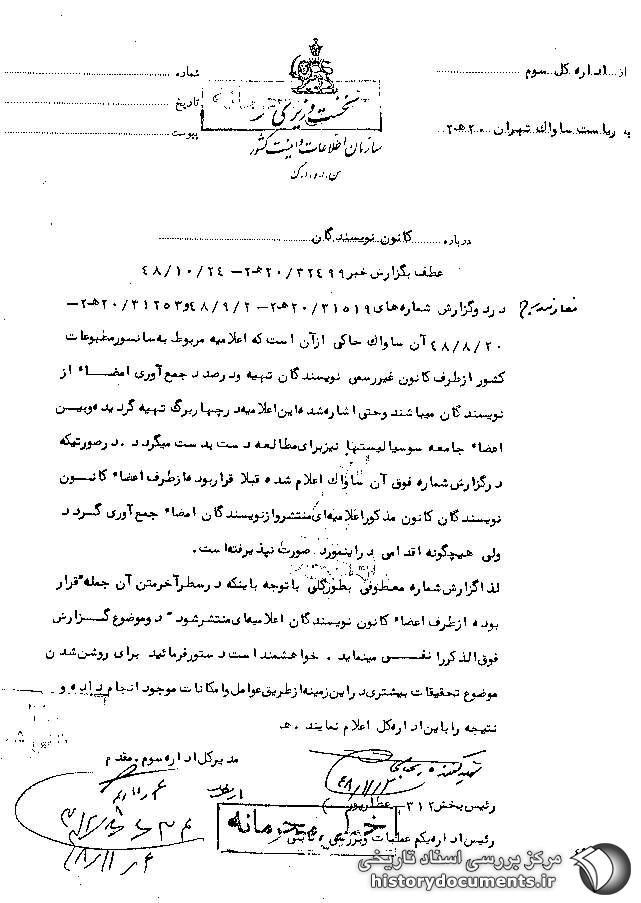 از ... اداره کل سوم
شماره
نخست وزیری
تاریخ
سازمان اطلاعات و امنیت کشور
به ریاست ساواک تهران ۲۰هـ۲
پیوست
س.ا.و.ا.ک
درباره کانون نویسندگان
عطف بگزارش خبر ۲۰/۳۲۴۹۹هـ۲ - ۴۸/۱۰/۲۴
در دو گزارش شماره‌های ۲۰/۳۱۵۱۹هـ۲ - ۴۸/۹/۲ و ۲۰/۳۱۲۵۳هـ۲ -
۴۸/۸/۲۰ آن ساواک حاکی از آن است که اعلامیه مربوط به سانسور مطبوعات
کشور از طرف کانون غیررسمی نویسندگان تهیه و درصدد جمع‌آوری امضاء از
نویسندگان میباشند و حتی اشاره شده این اعلامیه در چهار برگ تهیه گردیده و بین
اعضاء جامعه سوسیالیستها نیز برای مطالعه دست بدست میگردد. در صورتیکه
در گزارش شماره فوق آن ساواک اعلام شده قبلا قرار بوده از طرف اعضاء کانون
نویسندگان کانون مذکور اعلامیه‌ای منتشر و از نویسندگان امضاء جمع‌آوری گردد
ولی هیچگونه اقدامی در اینمورد صورت نپذیرفته است.
لذا گزارش شماره معطوفی بطور کلی با توجه باینکه در سطر آخر متن آن جمله "قرار
بوده از طرف اعضاء کانون نویسندگان اعلامیه‌ای منتشر شود" دو موضوع گزارش
فوق‌الذکر را نقض مینماید. خواهشمند است دستور فرمائید برای روشن شدن
موضوع تحقیقات بیشتری در این زمینه از طریق عوامل و امکانات موجود انجام داده و
نتیجه را باین اداره کل اعلام نمایند. هـ
مدیر کل اداره سوم. مقدم
تهیه کننده
رئیس بخش ۳۱۲. عطارپور
خیلی محرمانه
رئیس اداره یکم عملیات و بررسی. ثابتی
مرکز بررسی اسناد تاریخی
historydocuments.ir